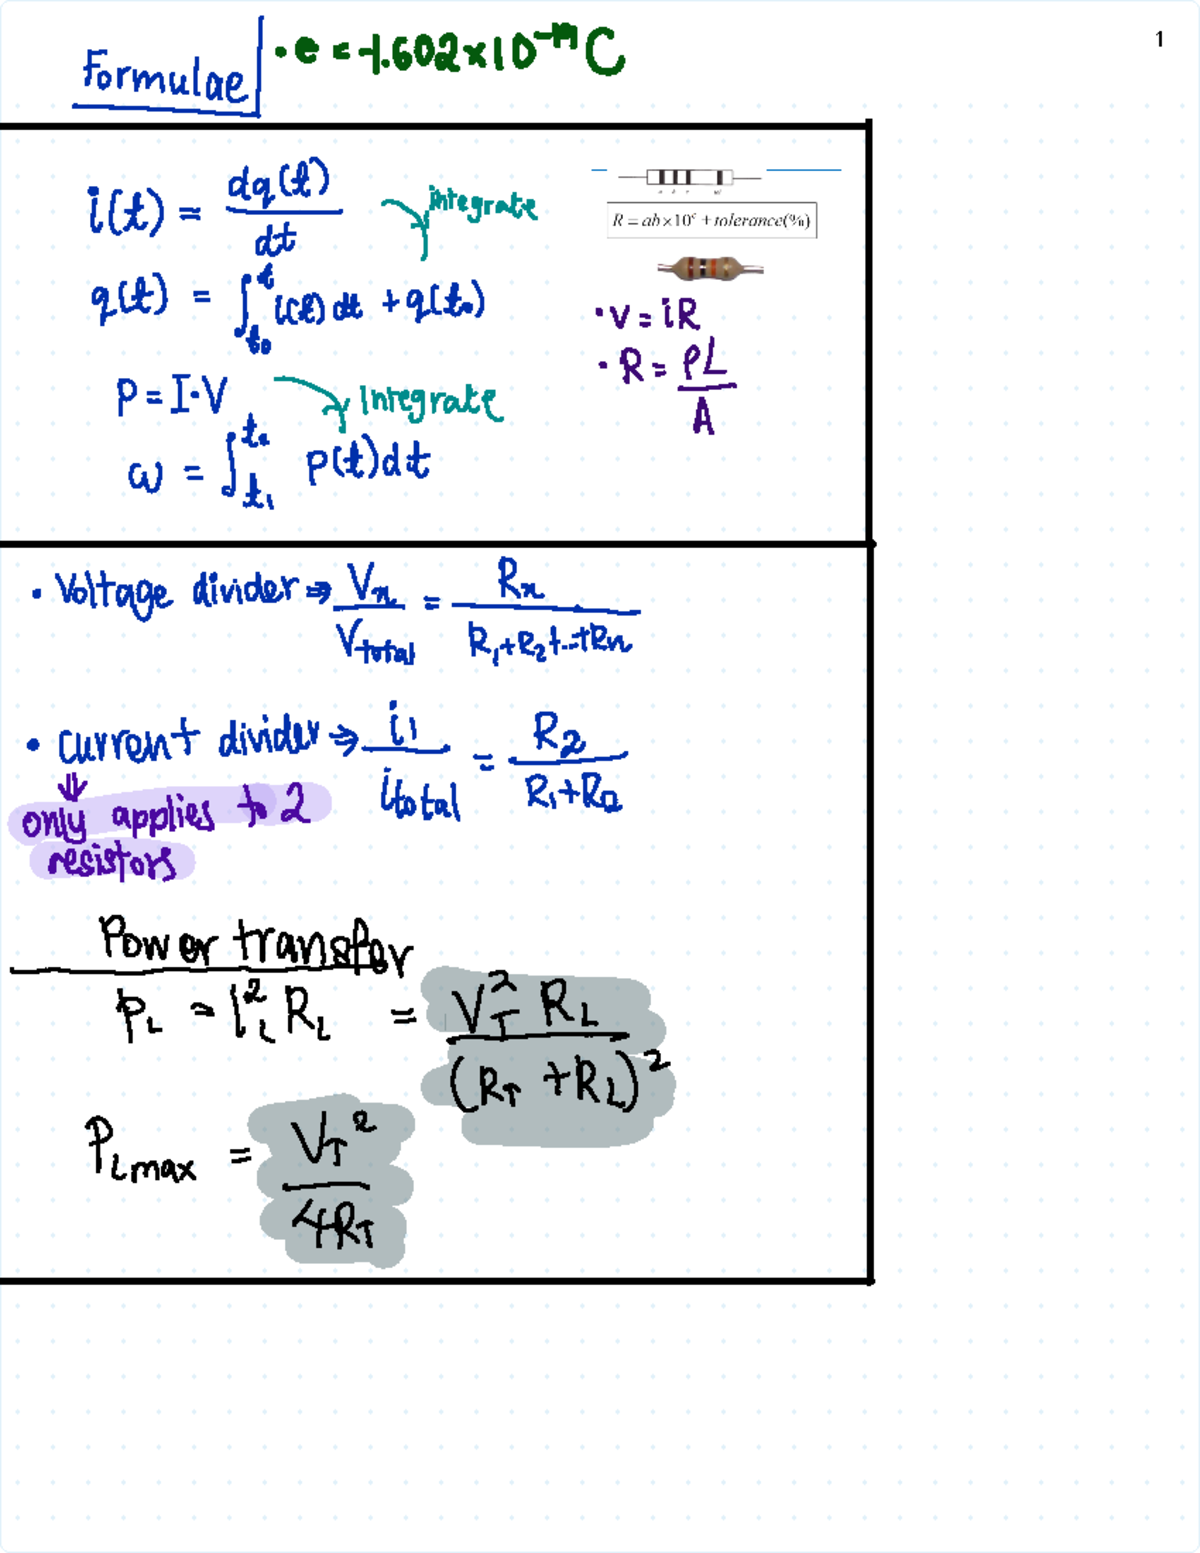 1
Formulae
• e = -1.602×10⁻¹⁹ C
i(t) = dq(t)/dt
integrate
q(t) = ∫_{t₀}^{t} i(t) dt + q(t₀)
P = I·V
Integrate
ω = ∫_{t₁}^{t₂} p(t)dt
R = ab×10ᶜ + tolerance(%)
• V = iR
• R = ρL/A
• Voltage divider ⇒ Vₙ/V_total = Rₙ/(R₁+R₂+...+Rₙ)
• current divider ⇒ i₁/i_total = R₂/(R₁+R₂)
⇓
only applies to 2
resistors
Power transfer
P_L = I_L² R_L = V_T² R_L/(R_T + R_L)²
P_Lmax = V_T²/4R_T